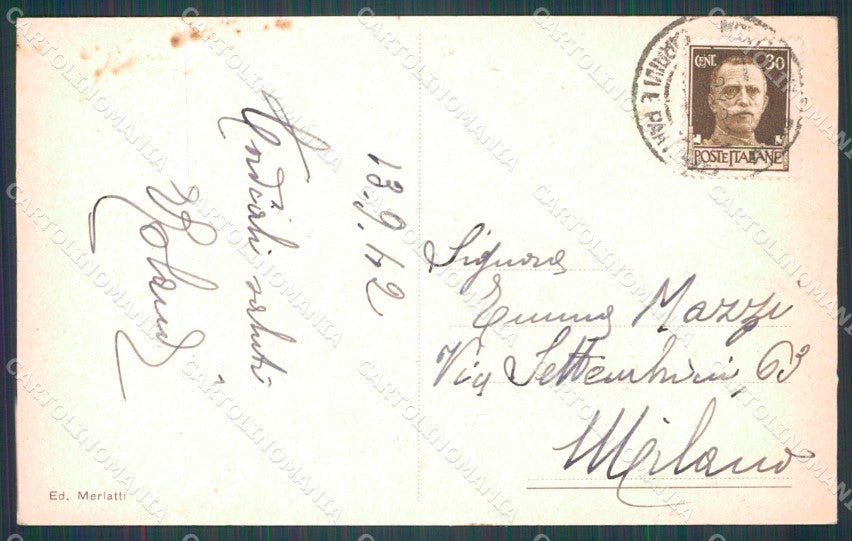 Cordiali saluti
13.9.42
CENT. 30
POSTE ITALIANE
Signora
Emma Mazzi
Via Settembrini, 63
Milano
Ed. Merlatti
CARTOLINOMANIA